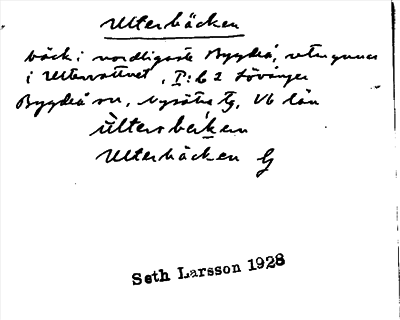 Utterbäcken
bäck i nordligaste Bygdeå, utrinner
i Uttervattnet, I: 62 Lövånger
Bygdeå sn, Nysätra Tg, Vb län
Utterbäcken G
Seth Larsson 1928